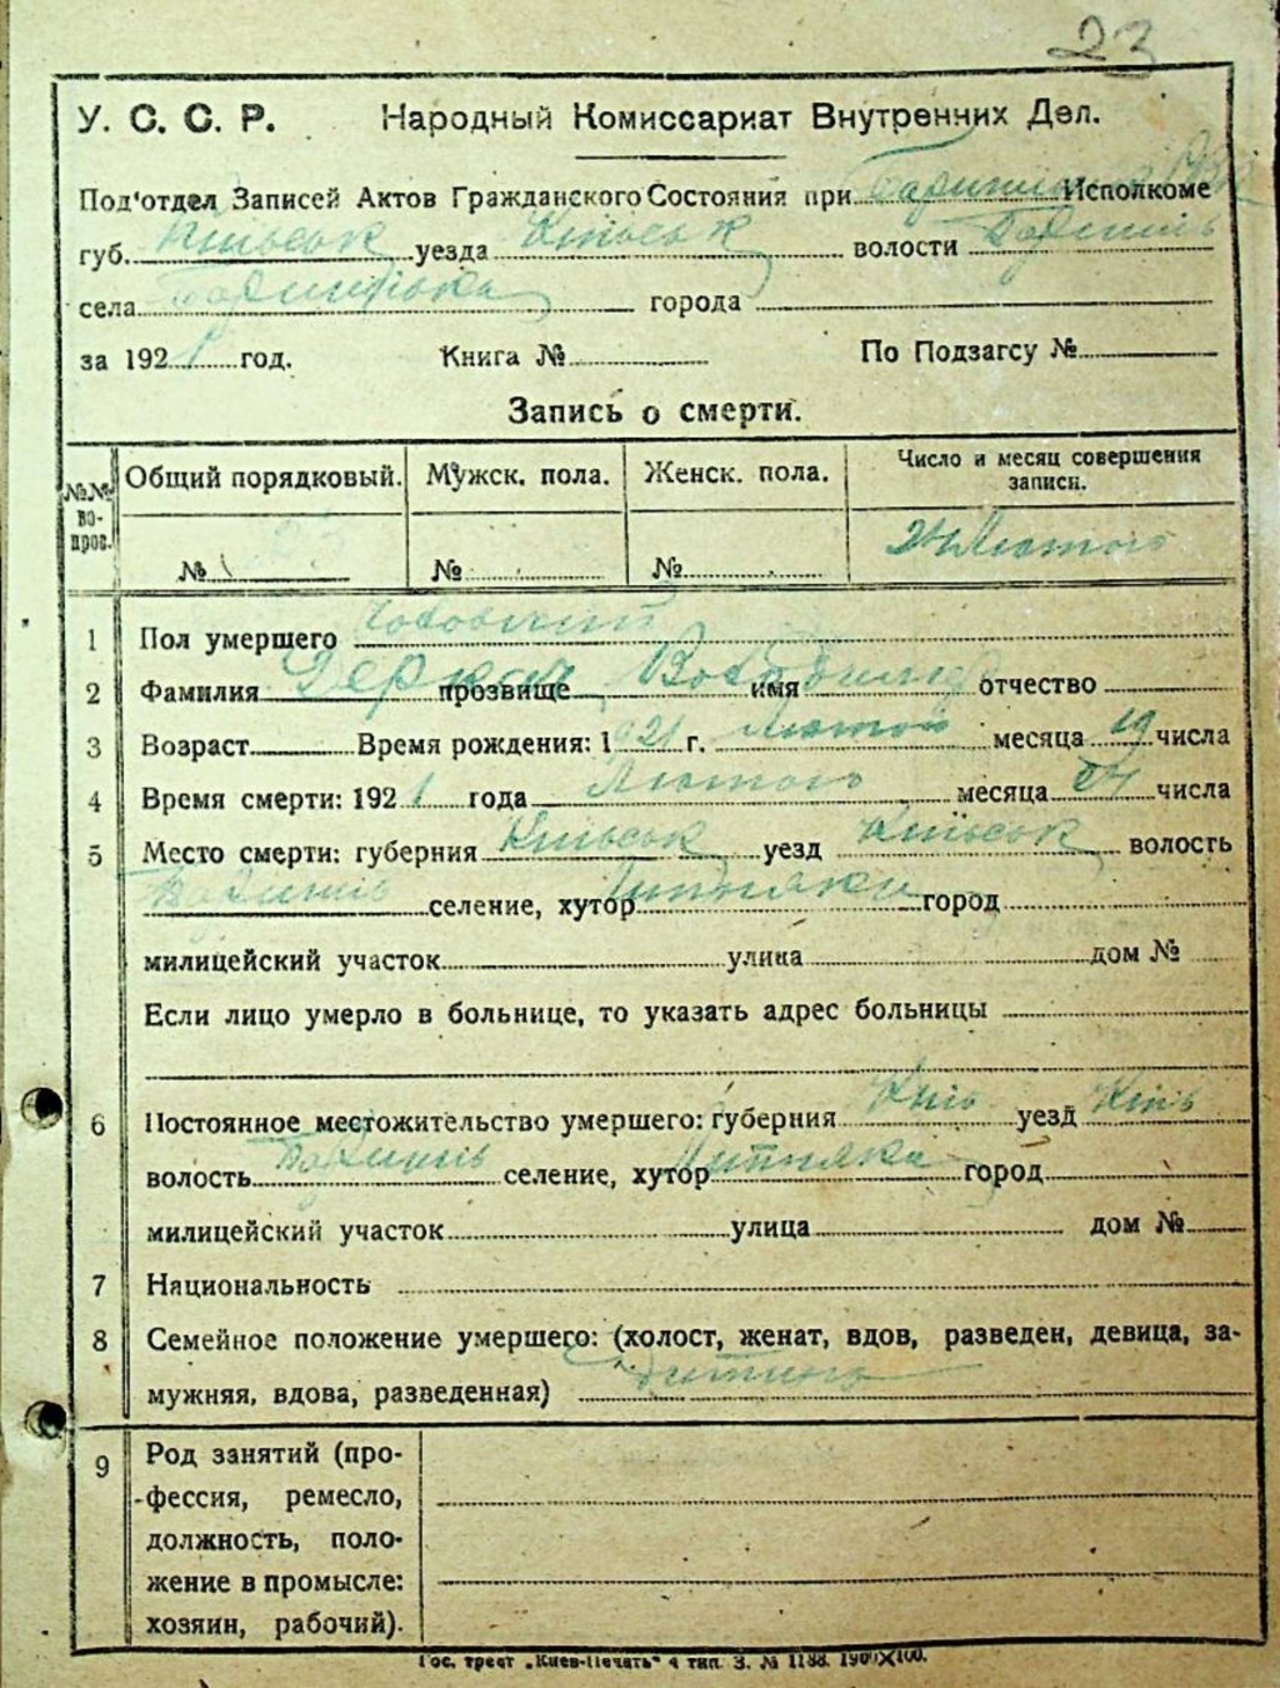 23
У. С. С. Р. Народный Комиссариат Внутренних Дел.
Под'отдел Записей Актов Гражданского Состояния при Исполкоме
губ. Київськ уезда Київськ волости
села города
за 1921 год. Книга № По Подзагсу №
Запись о смерти.
№№ вопрос. Общий порядковый. Мужск. пола. Женск. пола. Число и месяц совершения
записи.
№ № № 24 Лютого
1 Пол умершего Чоловічий
2 Фамилия Деркач прозвище имя отчество
3 Возраст Время рождения: 1921 г. Лютого месяца 19 числа
4 Время смерти: 1921 года Лютого месяца 24 числа
5 Место смерти: губерния Київськ уезд Київськ волость
селение, хутор город
милицейский участок улица дом №
Если лицо умерло в больнице, то указать адрес больницы
6 Постоянное местожительство умершего: губерния Київ уезд Київ
волость селение, хутор город
милицейский участок улица дом №
7 Национальность
8 Семейное положение умершего: (холост, женат, вдов, разведен, девица, за-
мужняя, вдова, разведенная) Дитина
9 Род занятий (про-
фессия, ремесло,
должность, поло-
жение в промысле:
хозяин, рабочий).
Гос. трест „Киев-Печать" 4 тип. З. № 1188.